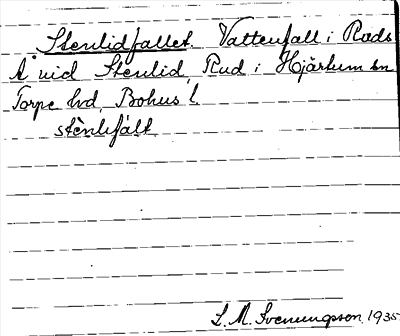 Stenlidfallet. Vattenfall i Röds
Å vid Stenlid, Rud i Hjärtum sn
Torpe hd, Bohus l.
stènlifált
L. M. Svenungsson, 1935